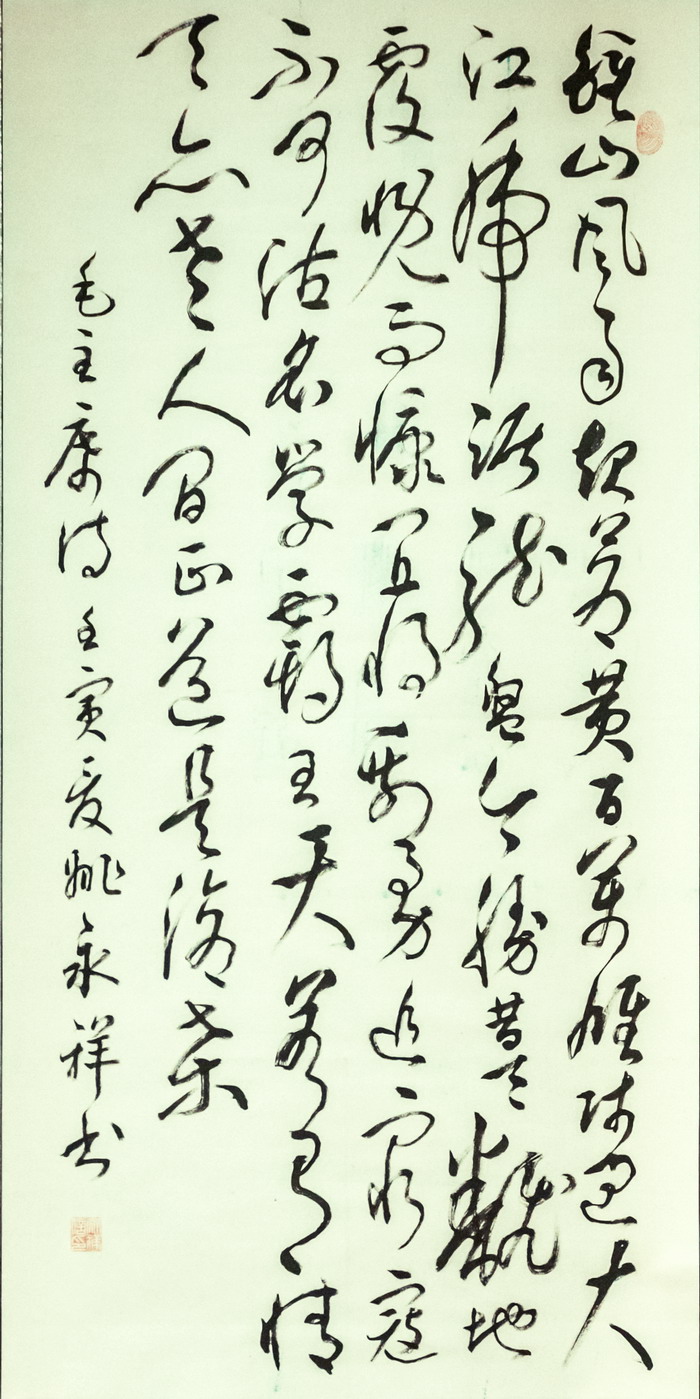 鍾山风雨起蒼黄百萬雄师过大
江虎踞龙盘今勝昔天翻地
覆慨而慷宜将剩勇追穷寇
不可沽名学霸王天若有情
天亦老人间正道是沧桑
毛主席诗壬寅夏姚永祥书